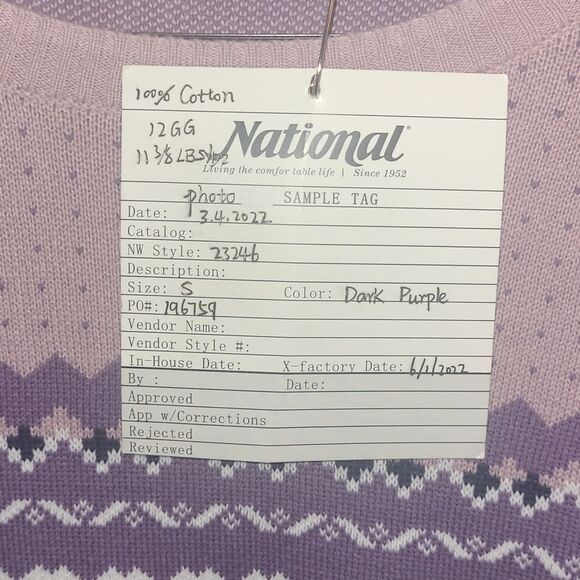 100% Cotton
12GG
11 3/8 LBS/
National
Living the comfor table life | Since 1952
photo SAMPLE TAG
Date: 3.4.2022.
Catalog:
NW Style: 23246
Description:
Size: S Color: Dark Purple
PO#: 196759
Vendor Name:
Vendor Style #:
In-House Date: X-factory Date: 6/1/2022
By : Date:
Approved
App w/Corrections
Rejected
Reviewed